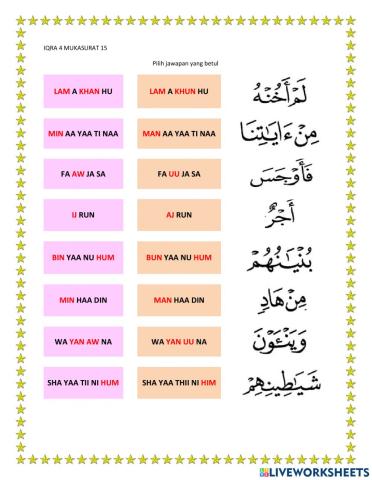 IQRA 4 MUKASURAT 15
Pilih jawapan yang betul
LAM A KHAN HU LAM A KHUN HU لَمْ أَخُنْهُ
MIN AA YAA TI NAA MAN AA YAA TI NAA مِنْ ءَايَٰتِنَا
FA AW JA SA FA UU JA SA فَأَوْجَسَ
IJ RUN AJ RUN أَجْرٌ
BIN YAA NU HUM BUN YAA NU HUM بُنْيَٰنُهُمْ
MIN HAA DIN MAN HAA DIN مِنْ هَادٍ
WA YAN AW NA WA YAN UU NA وَيَنْـَٔوْنَ
SHA YAA TII NI HUM SHA YAA THII NI HIM شَيَٰطِينِهِمْ
LIVEWORKSHEETS